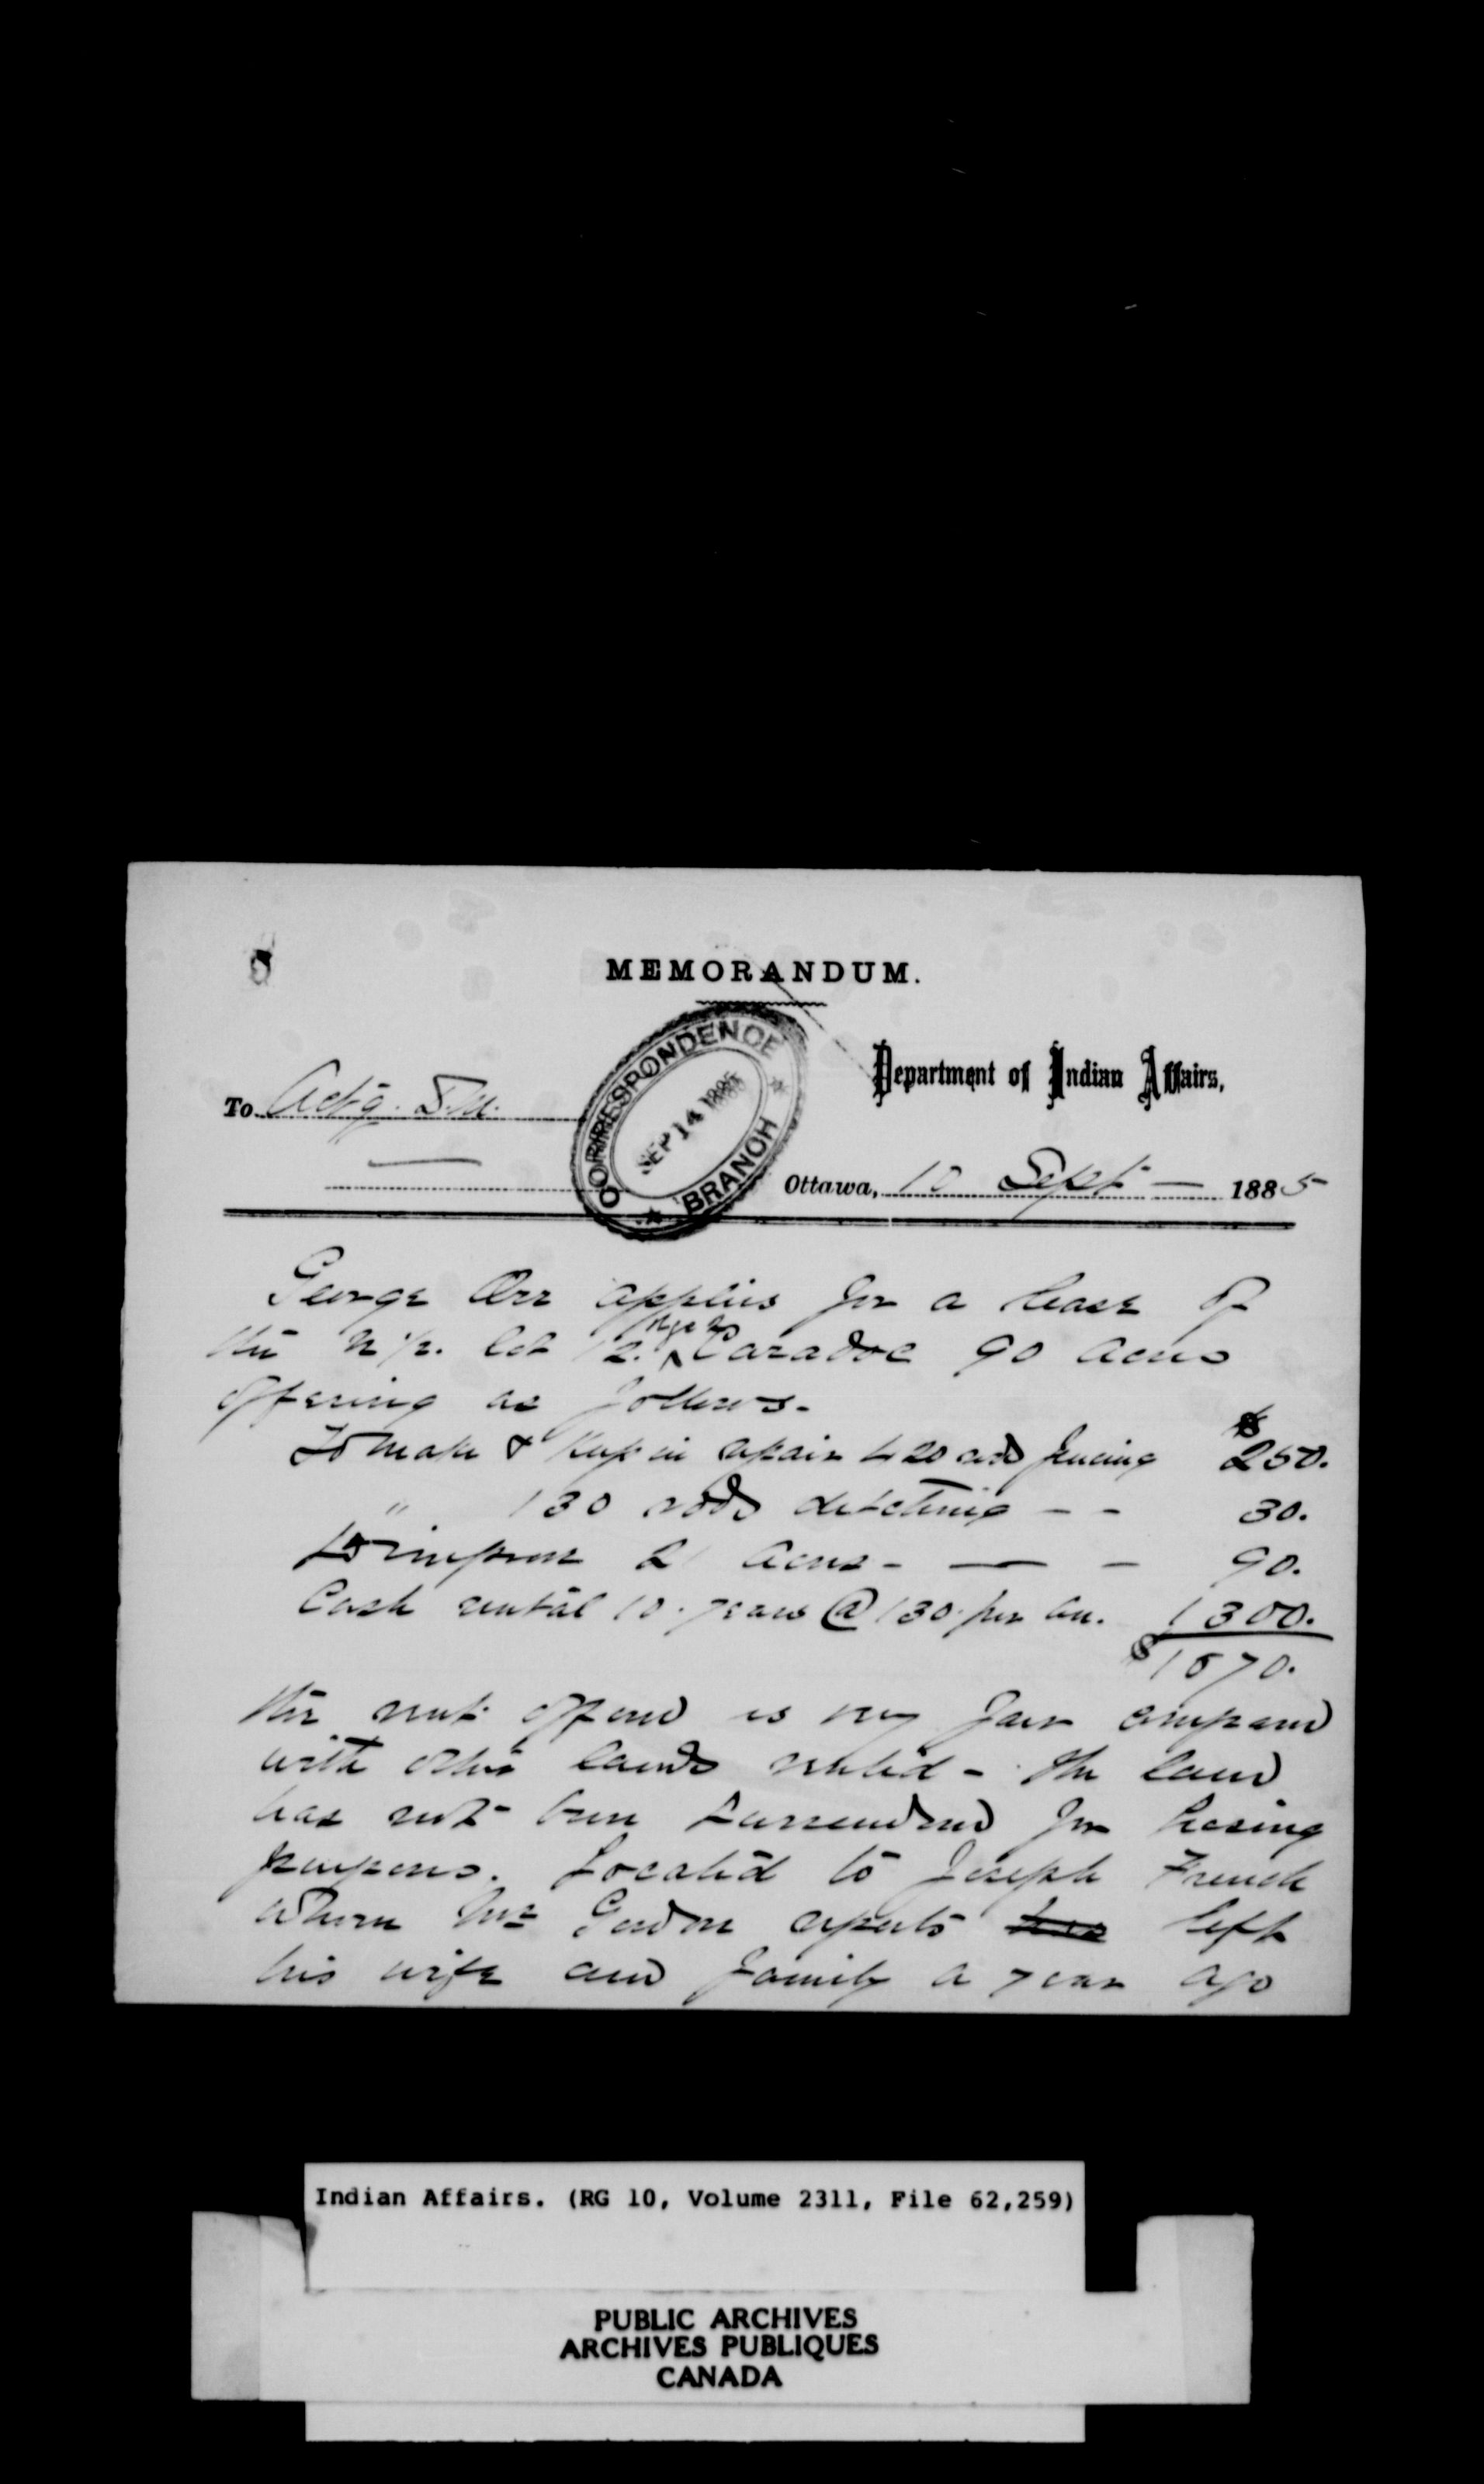 MEMORANDUM.
CORRESPONDENCE
SEP 14 1885
BRANCH
Department of Indian Affairs,
To Actg. D.M.
Ottawa, 10 Sept — 1885
George Orr applies for a lease of
the N 1/2. lot 12. rge 2 Caradoc 90 acres
offering as follows.
To make & keep in repair 420 rods fencing $250.
" 130 rods ditching - - 30.
to improve 21 acres - — - 90.
Cash rental 10 years @ 130 per an. 1300.
$1670.
the rent offered is very fair compared
with other lands rented - the land
has not been surrendered for leasing
purposes. Located to Joseph French
whom Mr Gordon reports left
his wife and family a year ago
Indian Affairs. (RG 10, Volume 2311, File 62,259)
PUBLIC ARCHIVES
ARCHIVES PUBLIQUES
CANADA